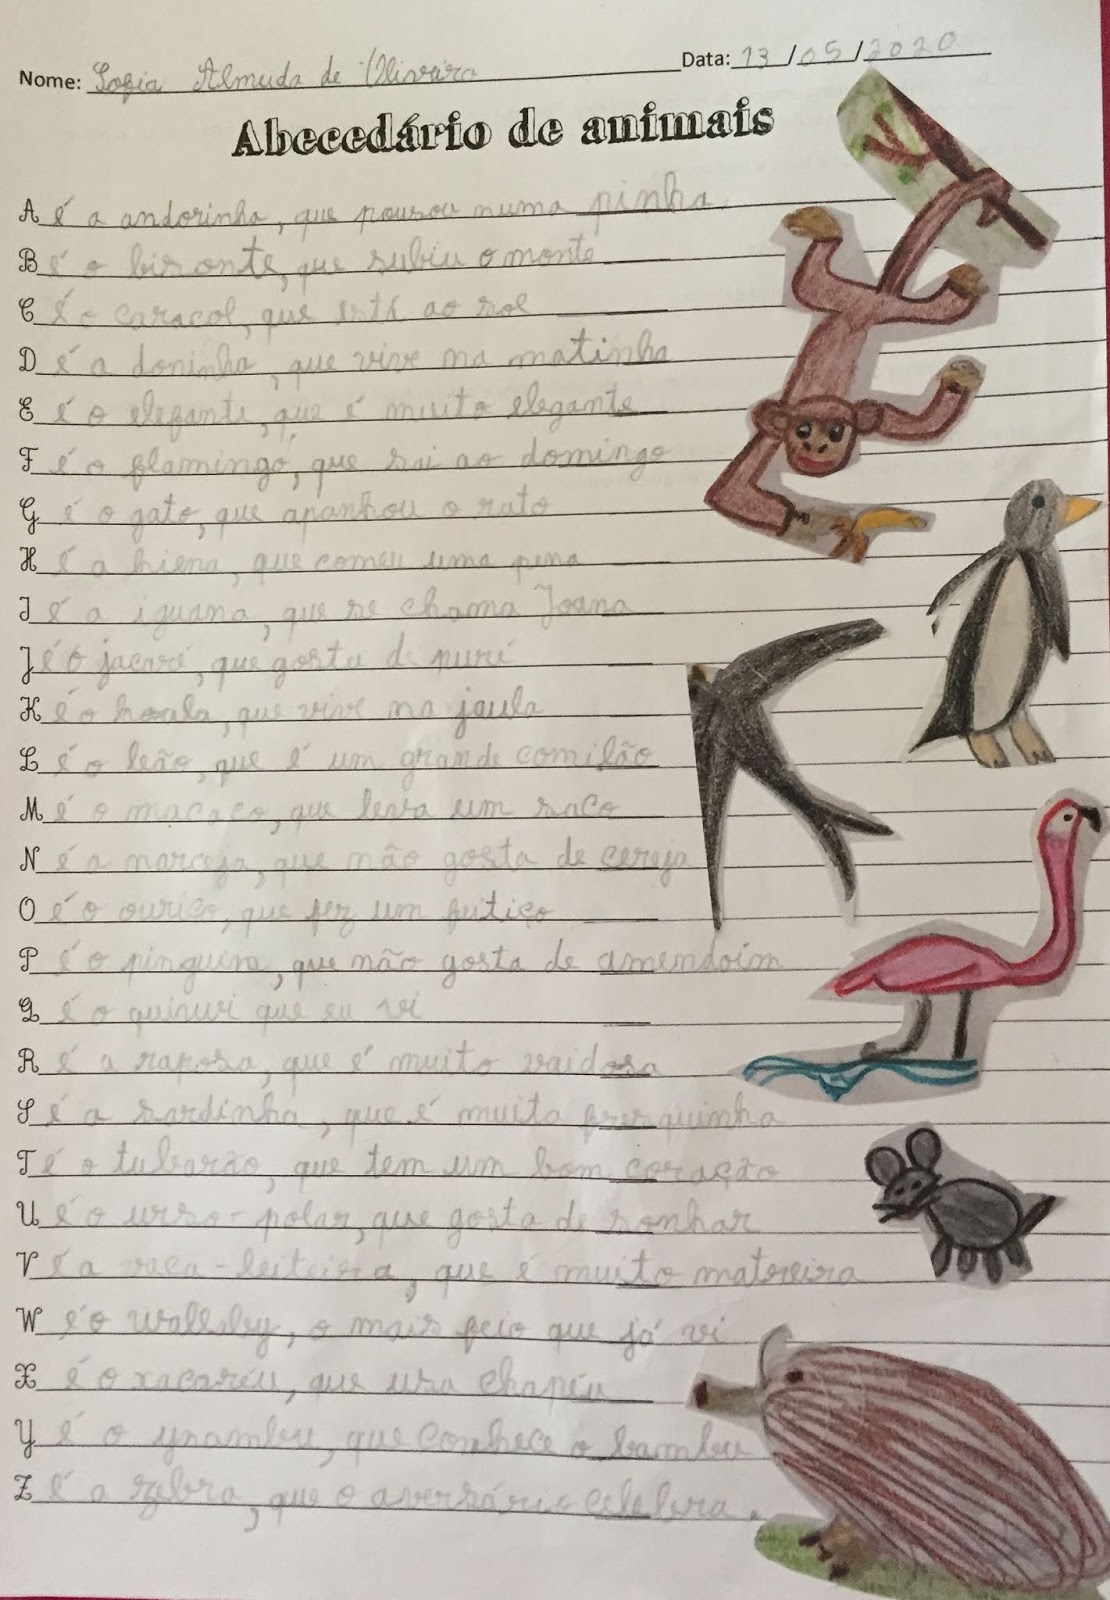 Nome: Sofia Almeida de Oliveira Data: 13/05/2020
Abecedário de animais
A é a andorinha, que pousou numa pinha.
B é o bisonte, que subiu o monte
C é o caracol, que está ao sol
D é a doninha, que vive na matinha
E é o elefante, que é muito elegante
F é o flamingo, que sai ao domingo
G é o gato, que apanhou o rato
H é a hiena, que comeu uma pena
I é a iguana, que se chama Joana
J é o jacaré, que gosta de puré
K é o koala, que vive na jaula
L é o leão, que é um grande comilão
M é o macaco, que leva um saco
N é a narceja, que não gosta de cereja
O é o ouriço, que fez um feitiço
P é o pinguim, que não gosta de amendoim
Q é o quiuvi que eu vi
R é a raposa, que é muito vaidosa
S é a sardinha, que é muita fresquinha
T é o tubarão, que tem um bom coração
U é o urso-polar, que gosta de sonhar
V é a vaca-leiteira, que é muito matreira
W é o wallaby, o mais feio que já vi
X é o xacaréu, que usa chapéu
Y é o ynambu, que conhece o bambu
Z é a zebra, que o aversário celebra.